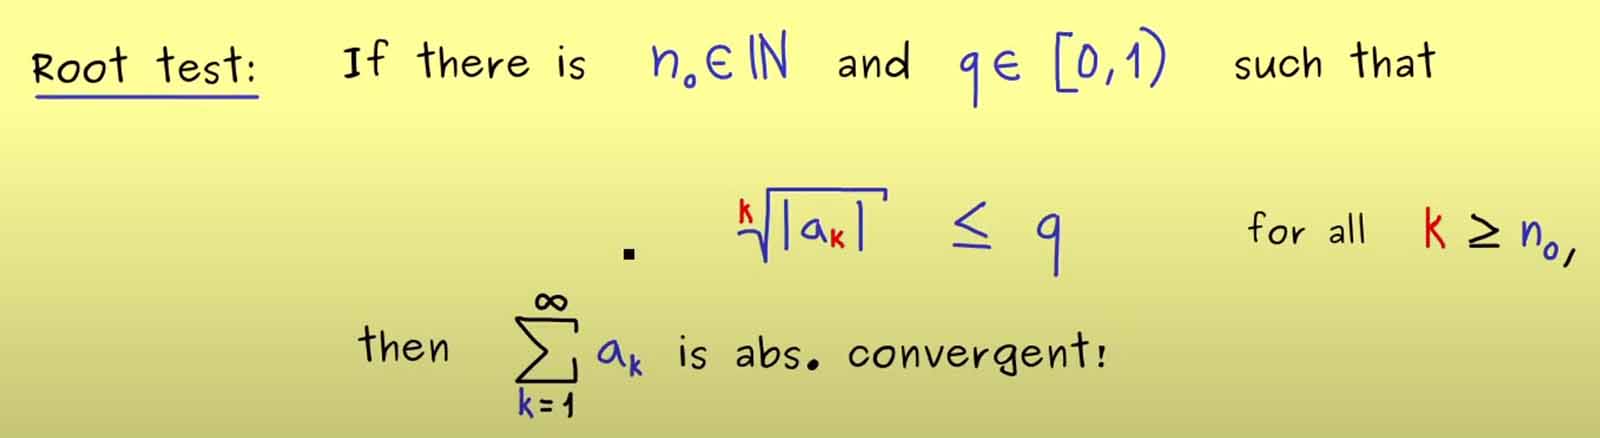 Root test: If there is n₀ ∈ ℕ and q ∈ [0,1) such that
ᵏ√|aₖ| ≤ q for all k ≥ n₀,
then ∑_{k=1}^{∞} aₖ is abs. convergent!